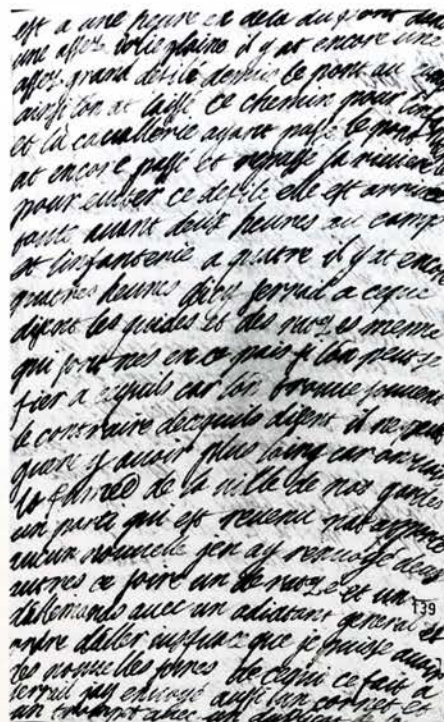 est a une heure en dela du pont dans
une assez jolie plaine il y at encore une
assez grand défilé depuis le pont au
ainsi lon at laissé ce chemin pour linf
et la cavallerie ayant passé le pont
at encore passé et repassé la riviere
pour eviter ce defilé elle est arrivée
toute avant deux heures au camp
et linfanterie a quatre il y at encor
quatres heures dicy serrail a cequi
disent les guides et des razes meme
qui sont nes en ce pais si lon peut se
fier a cequils car lon trouve souvent
le contraire decequils disent il ne peut
guere y avoir plus loing car on voit
la fumée de la ville de nos gardes
un parti qui est revenu nat appris
aucun nouvelle jen ay renvoyé deux
autres ce soire un de razes et un
dallemands avec un adiutant general et
139
ordre daller iusqua ce que je puisse avoir
des nouvelles seures de cequi ce fait a
serrail jay envoyé aussi un cornet et
un trompet avec un